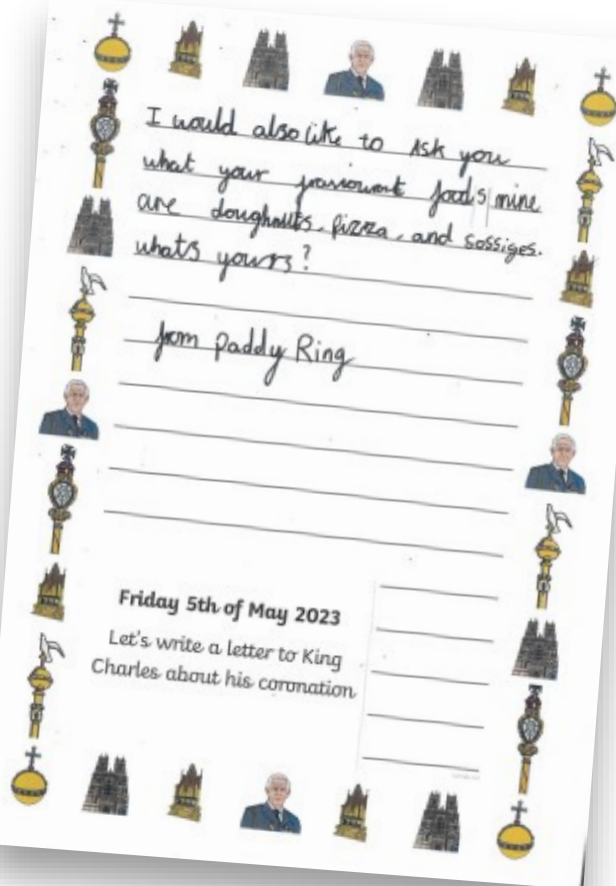 I would also like to Ask you
what your fraviourent foods mine
are doughnuts, Pizza, and sossiges.
whats yours?
from Paddy Ring
Friday 5th of May 2023
Let's write a letter to King
Charles about his coronation